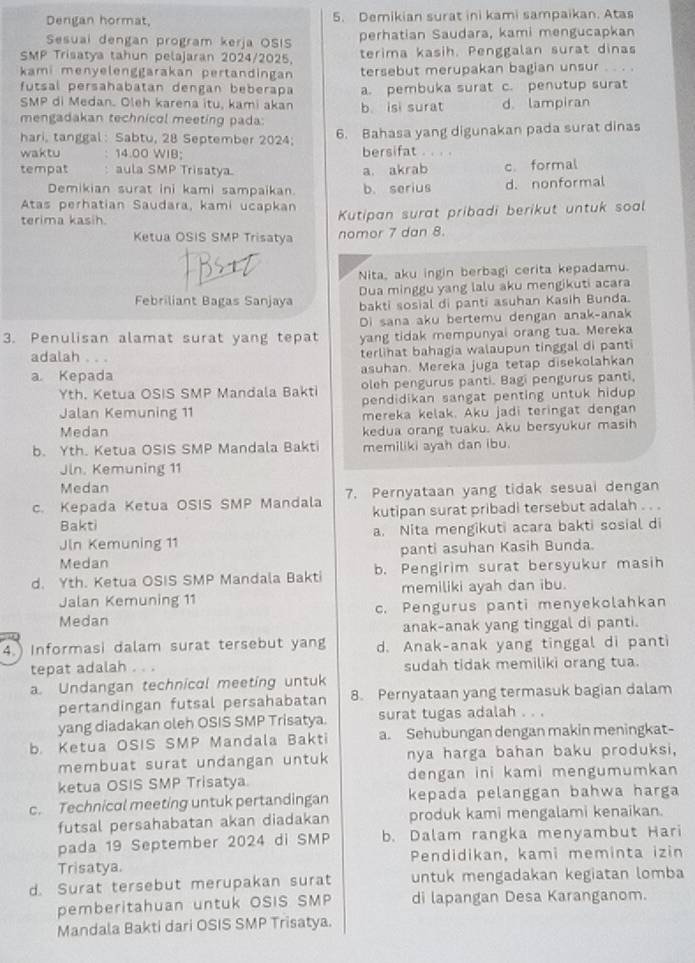 Dengan hormat,
Sesuai dengan program kerja OSIS
SMP Trisatya tahun pelajaran 2024/2025,
kami menyelenggarakan pertandingan
futsal persahabatan dengan beberapa
SMP di Medan. Oleh karena itu, kami akan
mengadakan technical meeting pada:
hari, tanggal : Sabtu, 28 September 2024;
waktu : 14.00 WIB;
tempat : aula SMP Trisatya.
Demikian surat ini kami sampaikan.
Atas perhatian Saudara, kami ucapkan
terima kasih.
Ketua OSIS SMP Trisatya
Febriliant Bagas Sanjaya
3. Penulisan alamat surat yang tepat
adalah . . .
a. Kepada
Yth. Ketua OSIS SMP Mandala Bakti
Jalan Kemuning 11
Medan
b. Yth. Ketua OSIS SMP Mandala Bakti
Jln. Kemuning 11
Medan
c. Kepada Ketua OSIS SMP Mandala
Bakti
Jln Kemuning 11
Medan
d. Yth. Ketua OSIS SMP Mandala Bakti
Jalan Kemuning 11
Medan
4. Informasi dalam surat tersebut yang
tepat adalah . . .
a. Undangan technical meeting untuk
pertandingan futsal persahabatan
yang diadakan oleh OSIS SMP Trisatya.
b. Ketua OSIS SMP Mandala Bakti
membuat surat undangan untuk
ketua OSIS SMP Trisatya.
c. Technical meeting untuk pertandingan
futsal persahabatan akan diadakan
pada 19 September 2024 di SMP
Trisatya.
d. Surat tersebut merupakan surat
pemberitahuan untuk OSIS SMP
Mandala Bakti dari OSIS SMP Trisatya.
5. Demikian surat ini kami sampaikan. Atas
perhatian Saudara, kami mengucapkan
terima kasih. Penggalan surat dinas
tersebut merupakan bagian unsur . . . .
a. pembuka surat c. penutup surat
b. isi surat d. lampiran
6. Bahasa yang digunakan pada surat dinas
bersifat . . . .
a. akrab c. formal
b. serius d. nonformal
Kutipan surat pribadi berikut untuk soal
nomor 7 dan 8.
Nita, aku ingin berbagi cerita kepadamu.
Dua minggu yang lalu aku mengikuti acara
bakti sosial di panti asuhan Kasih Bunda.
Di sana aku bertemu dengan anak-anak
yang tidak mempunyai orang tua. Mereka
terlihat bahagia walaupun tinggal di panti
asuhan. Mereka juga tetap disekolahkan
oleh pengurus panti. Bagi pengurus panti,
pendidikan sangat penting untuk hidup
mereka kelak. Aku jadi teringat dengan
kedua orang tuaku. Aku bersyukur masih
memiliki ayah dan ibu.
7. Pernyataan yang tidak sesuai dengan
kutipan surat pribadi tersebut adalah . . .
a. Nita mengikuti acara bakti sosial di
panti asuhan Kasih Bunda.
b. Pengirim surat bersyukur masih
memiliki ayah dan ibu.
c. Pengurus panti menyekolahkan
anak-anak yang tinggal di panti.
d. Anak-anak yang tinggal di panti
sudah tidak memiliki orang tua.
8. Pernyataan yang termasuk bagian dalam
surat tugas adalah . . .
a. Sehubungan dengan makin meningkat-
nya harga bahan baku produksi,
dengan ini kami mengumumkan
kepada pelanggan bahwa harga
produk kami mengalami kenaikan.
b. Dalam rangka menyambut Hari
Pendidikan, kami meminta izin
untuk mengadakan kegiatan lomba
di lapangan Desa Karanganom.